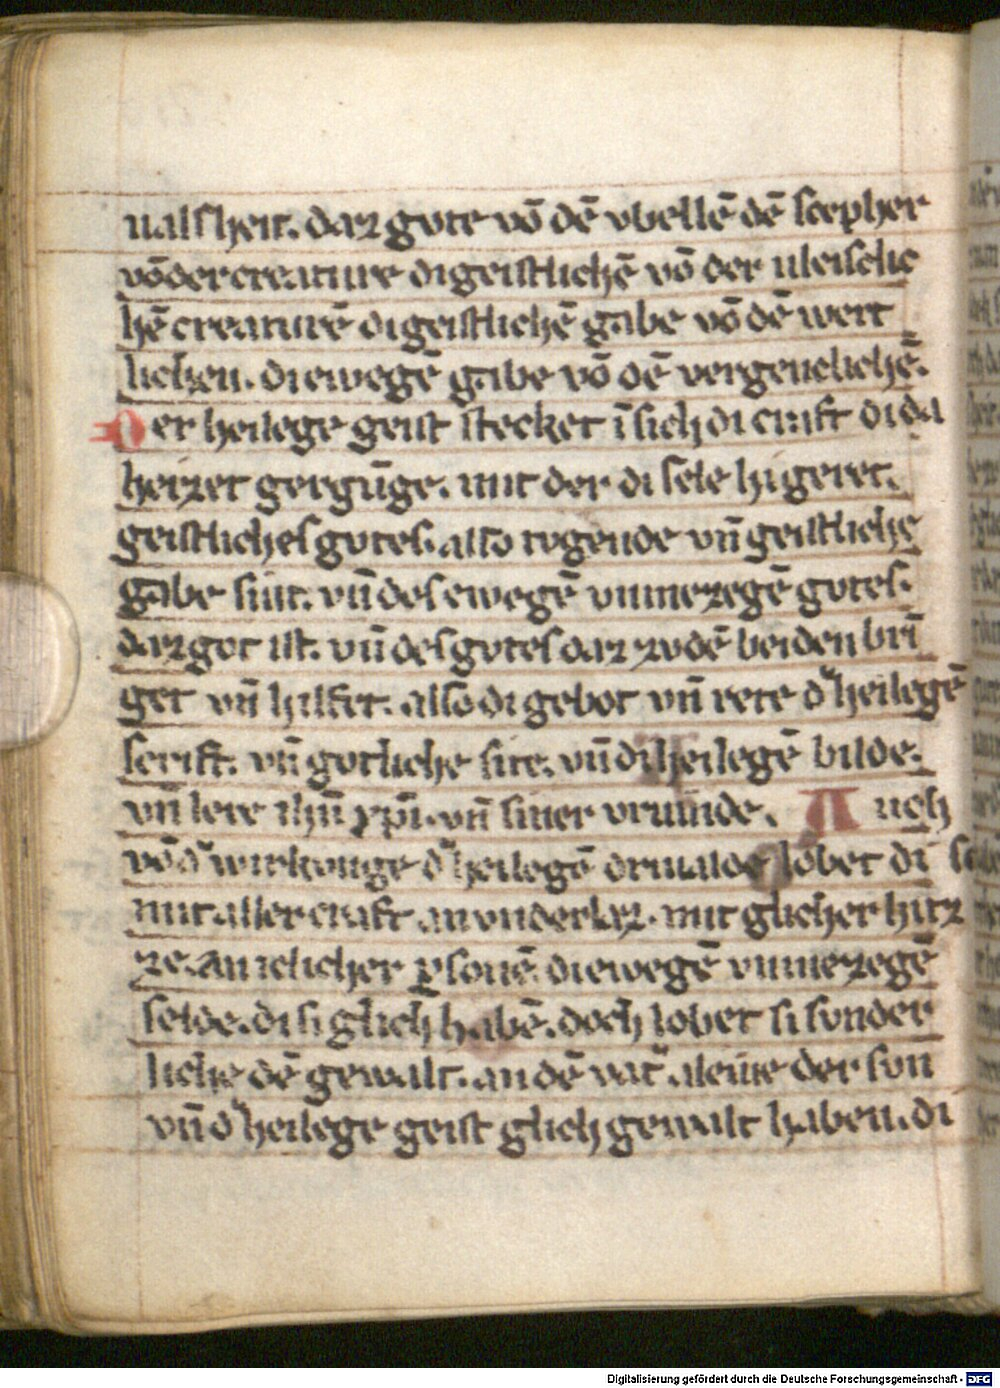 ualsheit. daz gote vō dē vbellē dē scepher
vō der creature di geistlichē vō der vleislic
hē creaturē di geistlichē gabe vō dē wert
lichen. di ewegē gabe vō dē vergenclichē.
Der heilege geist stecket ī sich di craft di da
heizet gergūge. mit der di sele hi geret.
geistliches gotes. also togende vn̄ geistliche
gabe sint. vn̄ des ewegē vnmezegē gotes.
daz got ist. vn̄ des gotes daz zv dē beiden brī
get vn̄ hilfet. also di gebot vn̄ rete d' heilegē
scrift. vn̄ gotliche site. vn̄ di heilegē bilde.
vn̄ lere ih̄u xp̄i. vn̄ siner vrunde. Auch
vō d' wirkunge d' heilegē drivalde lobet di sele
mit aller craft an vnderlaz. mit glicher hitz
ze. an iclicher p̱sonē. di ewegē vnmezegē
selde. di si glich habē. doch lobet si svnder
liche dē gewalt. an dē vat' aleine der svn
vn̄ d' heilege geist glich gewalt haben. di
Digitalisierung gefördert durch die Deutsche Forschungsgemeinschaft - DFG